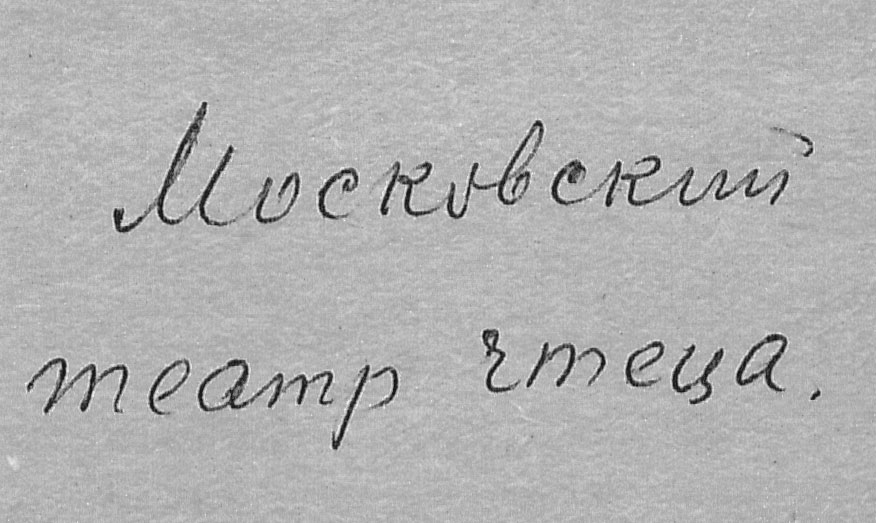 Московский
театр чтеца.